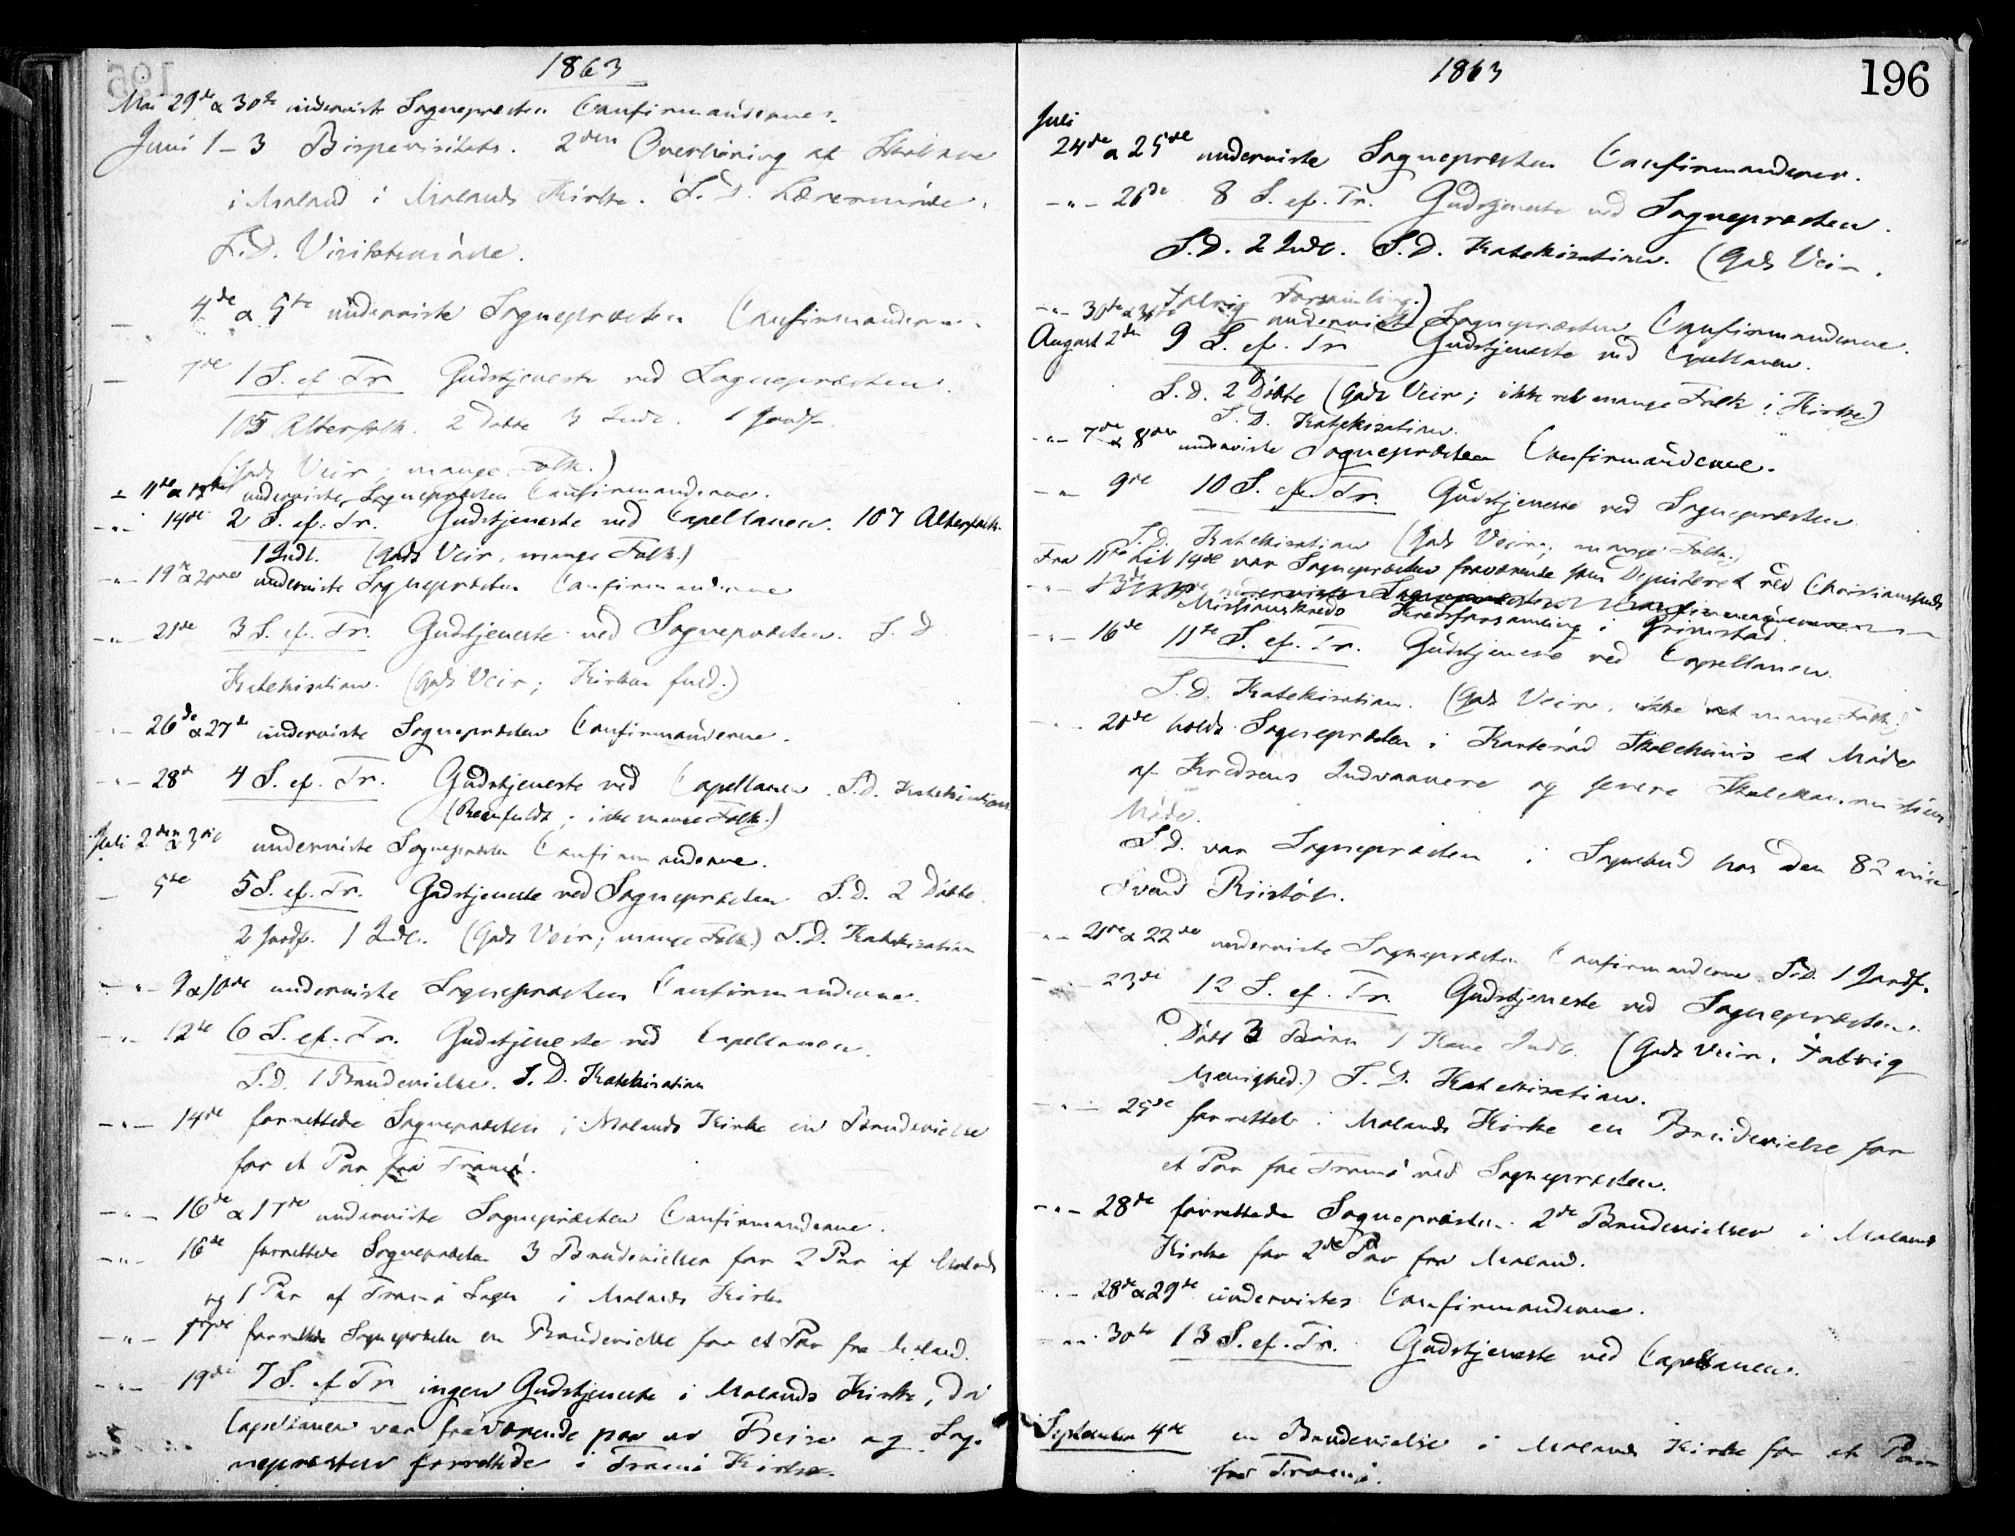 1863
Mai 29de & 30te underviste Sognepræsten Confirmanderne.
Juni 1 - 3 Bispevisitats. 2den Overhøring af Skolerne
i Moland i Molands Kirke. S.D. Lærermøde.
S.D. Visitatsmøde.
4de & 5te underviste Sognepræsten Confirmanderne.
7de 1 S. ef Tr. Gudstjeneste ved Sognepræsten.
105 Alterfolk. 2 Døbte 3 Indl. 1 Jordf.
(Godt Veir; mange Folk.)
-"- 11te & 12te underviste Sognepræsten Confirmanderne.
-"- 14de 2 S. ef. Tr. Gudstjeneste ved Capellanen. 107 Alterfolk.
1 Indl. (Godt Veir, mange Folk.)
-"- 19de & 20de underviste Sognepræsten Confirmanderne
-"- 21de 3 S. ef. Tr. Gudstjeneste ved Sognepræsten. S.D
Katekisation. (Godt Veir; Kirken fuld.)
-"- 26de & 27de underviste Sognepræsten Confirmanderne.
-"- 28de 4 S. ef. Tr. Gudstjeneste ved Capellanen. S.D. Katekisation
(Regnfuldt; ikke mange Folk.)
Juli 2den & 3die underviste Sognepræsten Confirmanderne.
5te 5 S. ef. Tr. Gudstjeneste ved Sognepræsten S.D. 2 Døbte.
2 Jordf. 1 Indl. (Godt Veir; mange Folk.) S.D. Katekisation
-"- 9 & 10de underviste Sognepræsten Confirmanderne.
-"- 12te 6 S. ef. Tr. Gudstjeneste ved Capellanen.
S.D. 1 Brudevielse. S.D. Katekisation
-"- 14de forrettede Sognepræsten i Molands Kirke en Brudevielse
for et Par fra Tromø.
-"- 16de & 17de underviste Sognepræsten Confirmanderne.
-"- 16de forrettede Sognepræsten 3 Brudevielser for 2 Par af Molands
og 1 Par af Tromø Sogn i Molands Kirke
-"- 17de forrettede Sognepræsten en Brudevielse for et Par fra Moland.
-"- 19de 7 S. ef Tr ingen Gudstjeneste i Molands Kirke, da
Capellanen var fraværende paa en Reise og Sog-
nepræsten forrettede i Tromø Kirke.
1863
196
Juli
24de & 25de underviste Sognepræsten Confirmanderne.
-"- 26de 8 S. ef. Tr. Gudstjeneste ved Sognepræsten.
S.D. 2 Indl. S.D. Katekisation. (Godt Veir.
talrig Forsamling.)
-"- 30te & 31te underviste Sognepræsten Confirmanderne.
August 2den 9 S. ef. Tr Gudstjeneste ved Capellanen.
S.D. 2 Døbte (Godt Veir; ikke ret mange Folk i Kirke)
S.D. Katekisation.
-"- 7de & 8de underviste Sognepræsten Confirmanderne.
-"- 9de 10 S. ef. Tr. Gudstjeneste ved Sognepræsten
S.D. Katekisation (Godt Veir; mange Folk.)
Fra 11te til 14de var Sognepræsten fraværende som Deputeret ved Christianssands
-"- 13de underviste Sognepræsten Confirmanderne
Missionskreds Kredsforsamling i Grimstad.
-"- 16de 11te S. ef. Tr. Gudstjeneste ved Capellanen.
S.D. Katekisation. (Godt Veir, ikke ret mange Folk.)
20de holdt Sognepræsten i Skolehuus et Møde
af Kredsens Indvaanere og senere Skolekommissions
Møde.
S.D. var Sognepræsten i Sognebud hos den 82
-"- 21de & 22de underviste Sognepræsten Confirmanderne S.D. 1 Jordf.
23de 12 S. ef. Tr. Gudstjeneste ved Sognepræsten.
Døbt 3 Børn 1 Kone Indl. (Godt Veir, talrig
Menighed.) S.D. Katekisation.
-"- 25de forrettet i Molands Kirke en Brudevielse for
et Par fra Tromø ved Sognepræsten.
-"- 28de forrettede Sognepræsten 2de Brudevielser i Molands
Kirke for 2de Par fra Moland.
-"- 28de & 29de undervistes Confirmanderne.
-"- 30te 13 S. ef. Tr. Gudstjeneste ved Capellanen.
September 4de en Brudevielse i Molands Kirke for et Par
fra Tromø.